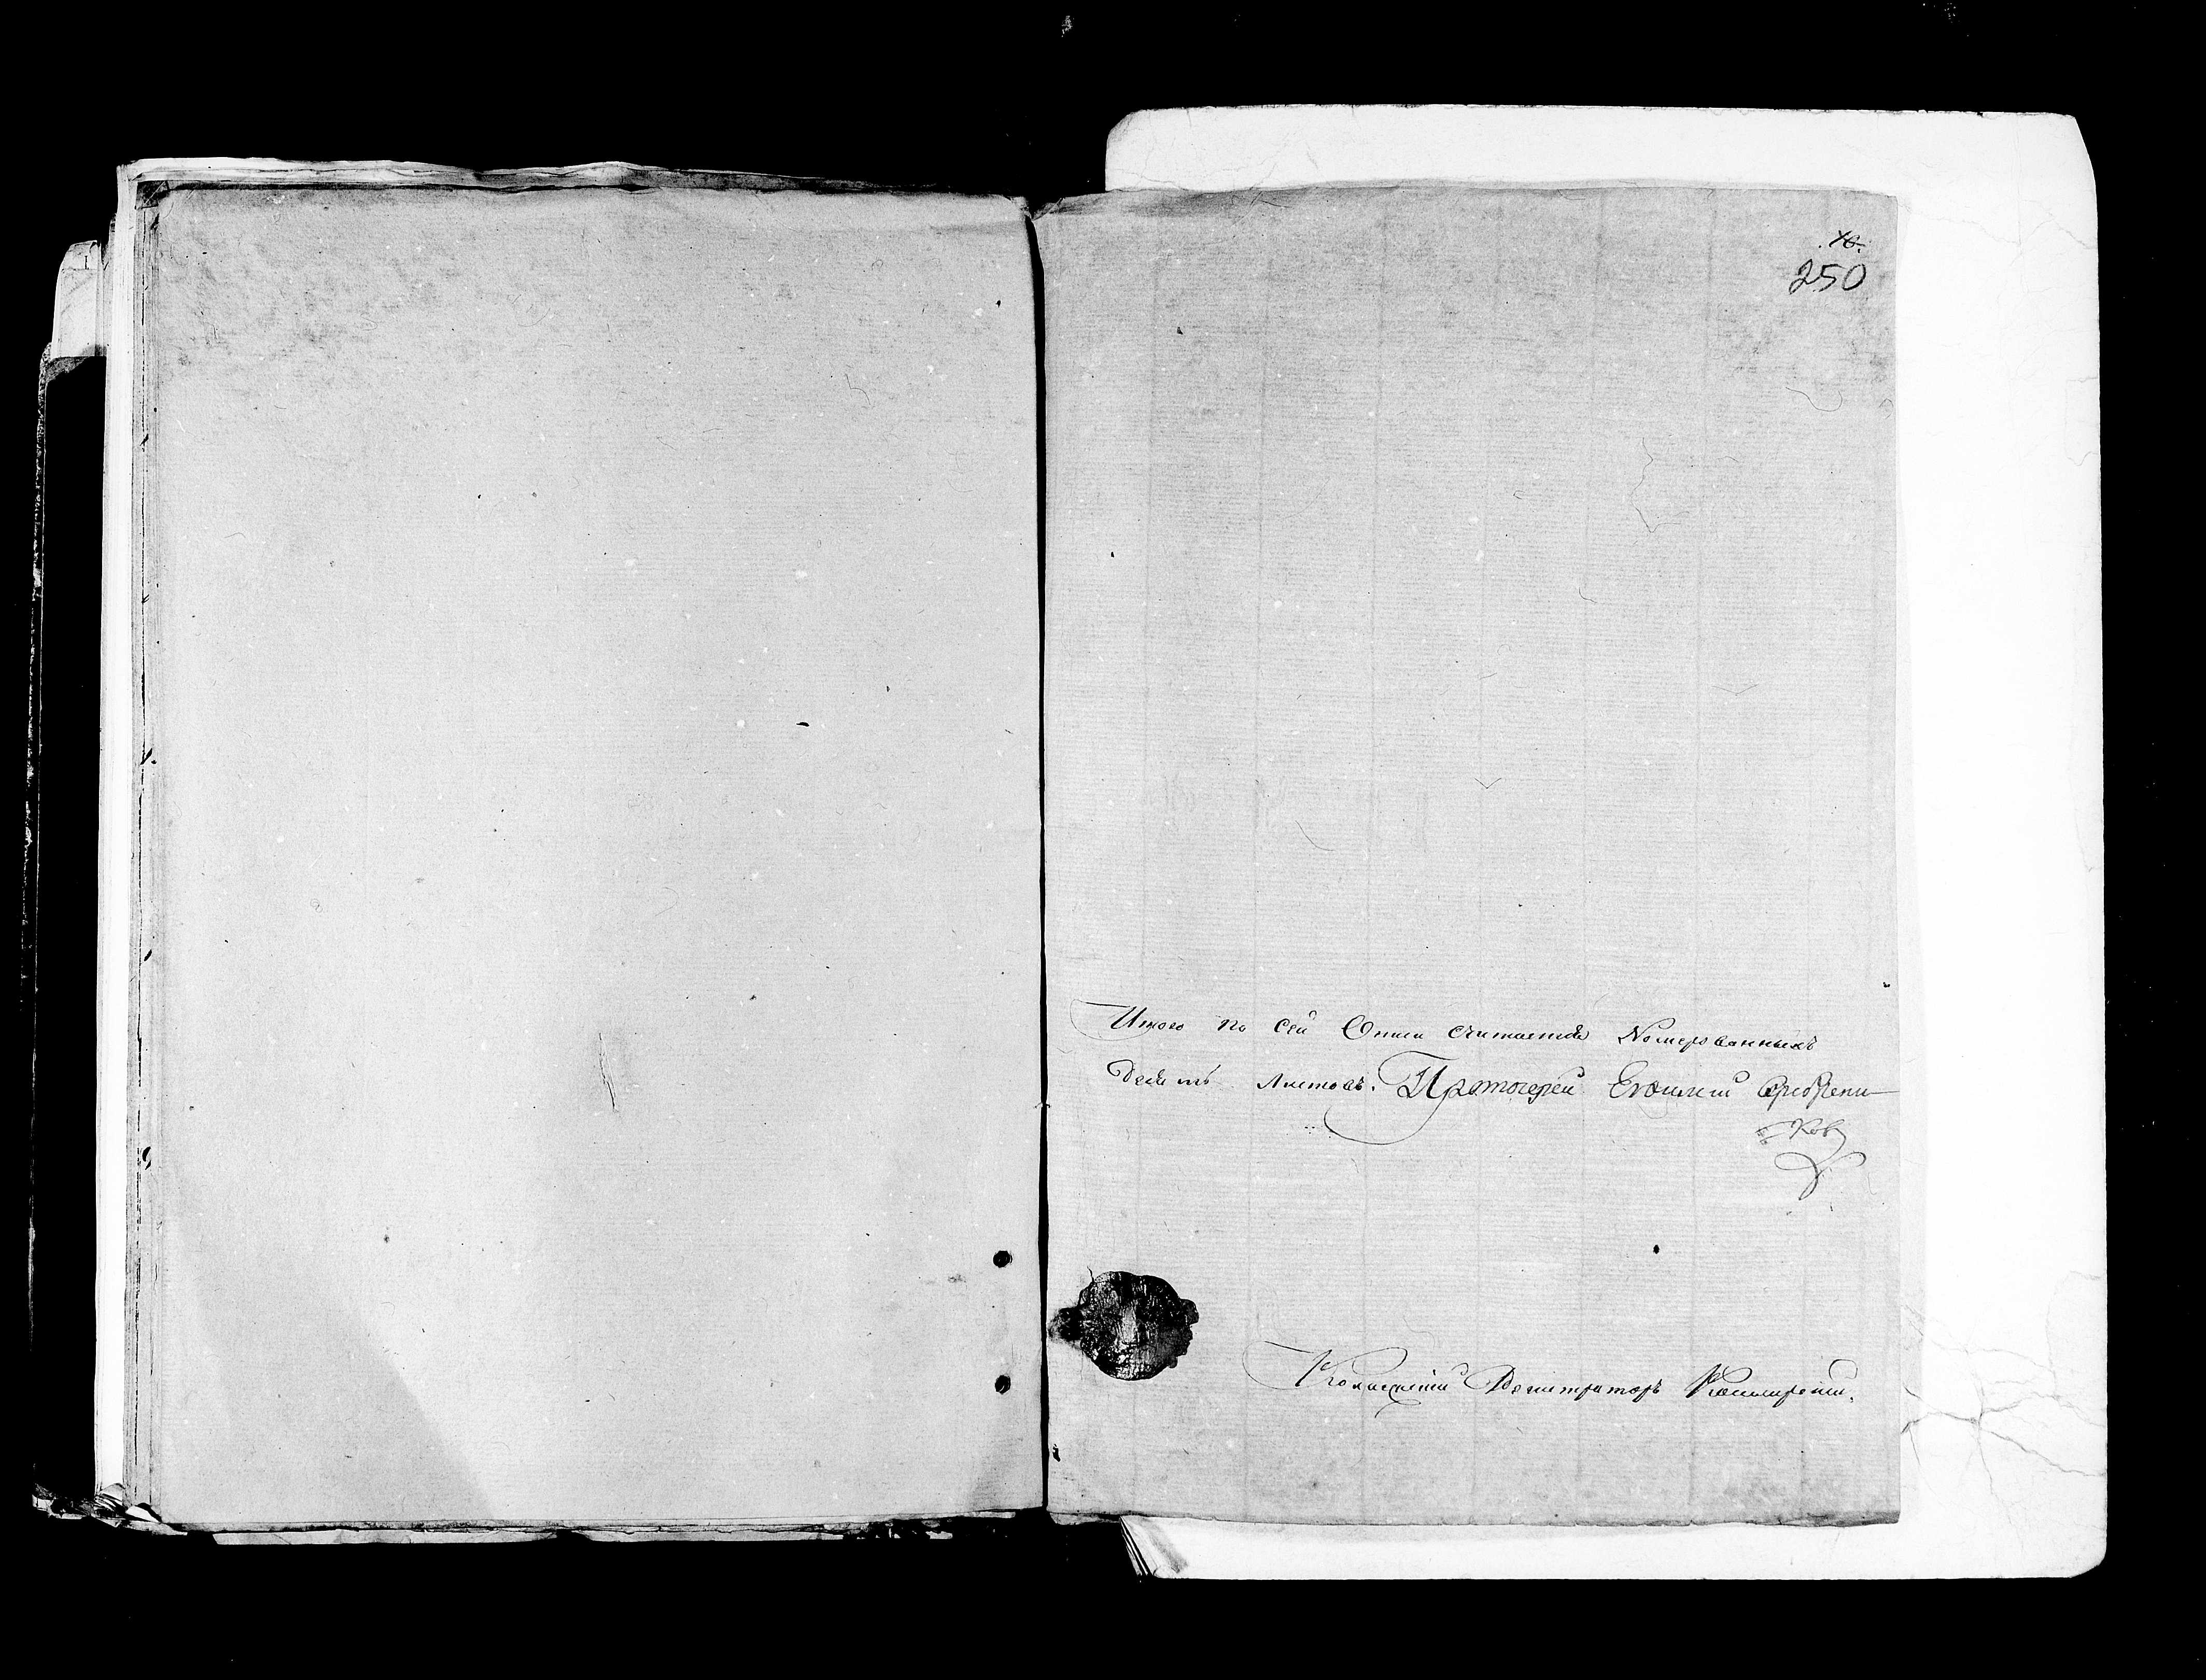 10.
250
Итого по сей Описи считается Номерованныхъ
десять листовъ. Протоіерей Евѳимій Серебрени-
ковъ
Коллежскій Регистраторъ